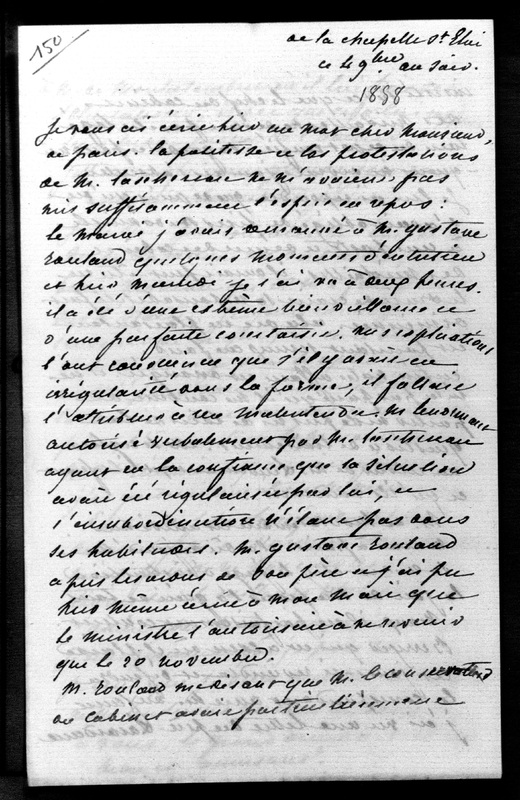 150
de la chapelle St Eloi
ce 9bre au soir.
1858
Je vous ai écrit hier un mot cher Monsieur,
de paris. la politesse et les protestations
de M. taschereau ne m'avaient pas
mis suffisamment l'esprit en repos :
le matin j'avais demandé à M. gustave
rouland quelques moments d'entretien
et hier même je l'ai vu à deux heures.
il a été d'une extrême bienveillance et
d'une parfaite courtoisie. mes explications
l'ont convaincu que s'il y avait eu
irrégularité dans la forme, il fallait
l'attribuer à un malentendu. M. lenormant
autorisé verbalement par M. taschereau
ayant eu la confiance que la situation
avait été régularisée par lui, et
l'insubordination n'étant pas dans
ses habitudes. M. gustave rouland
a pris les ordres de son père et j'ai pu
hier même écrire à mon mari que
le ministre l'autorisait à ne revenir
que le 20 novembre.
M. rouland me disant que M. le conservateur
du cabinet avait particulièrement